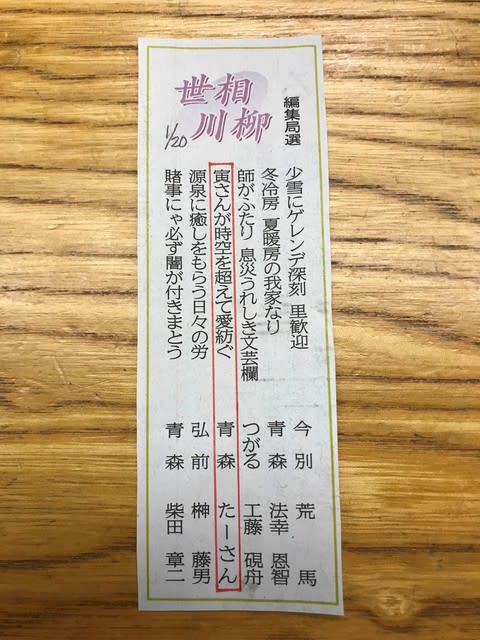 世相川柳
編集局選
1/20
少雪にゲレンデ深刻 里歓迎 今別 荒馬
冬冷房 夏暖房の我家なり 青森 法幸 恩智
師がふたり 息災うれしき文芸欄 つがる 工藤 硯舟
寅さんが時空を超えて愛紡ぐ 青森 たーさん
源泉に癒しをもらう日々の労 弘前 榊 藤男
賭事にゃ必ず闇が付きまとう 青森 柴田 章二